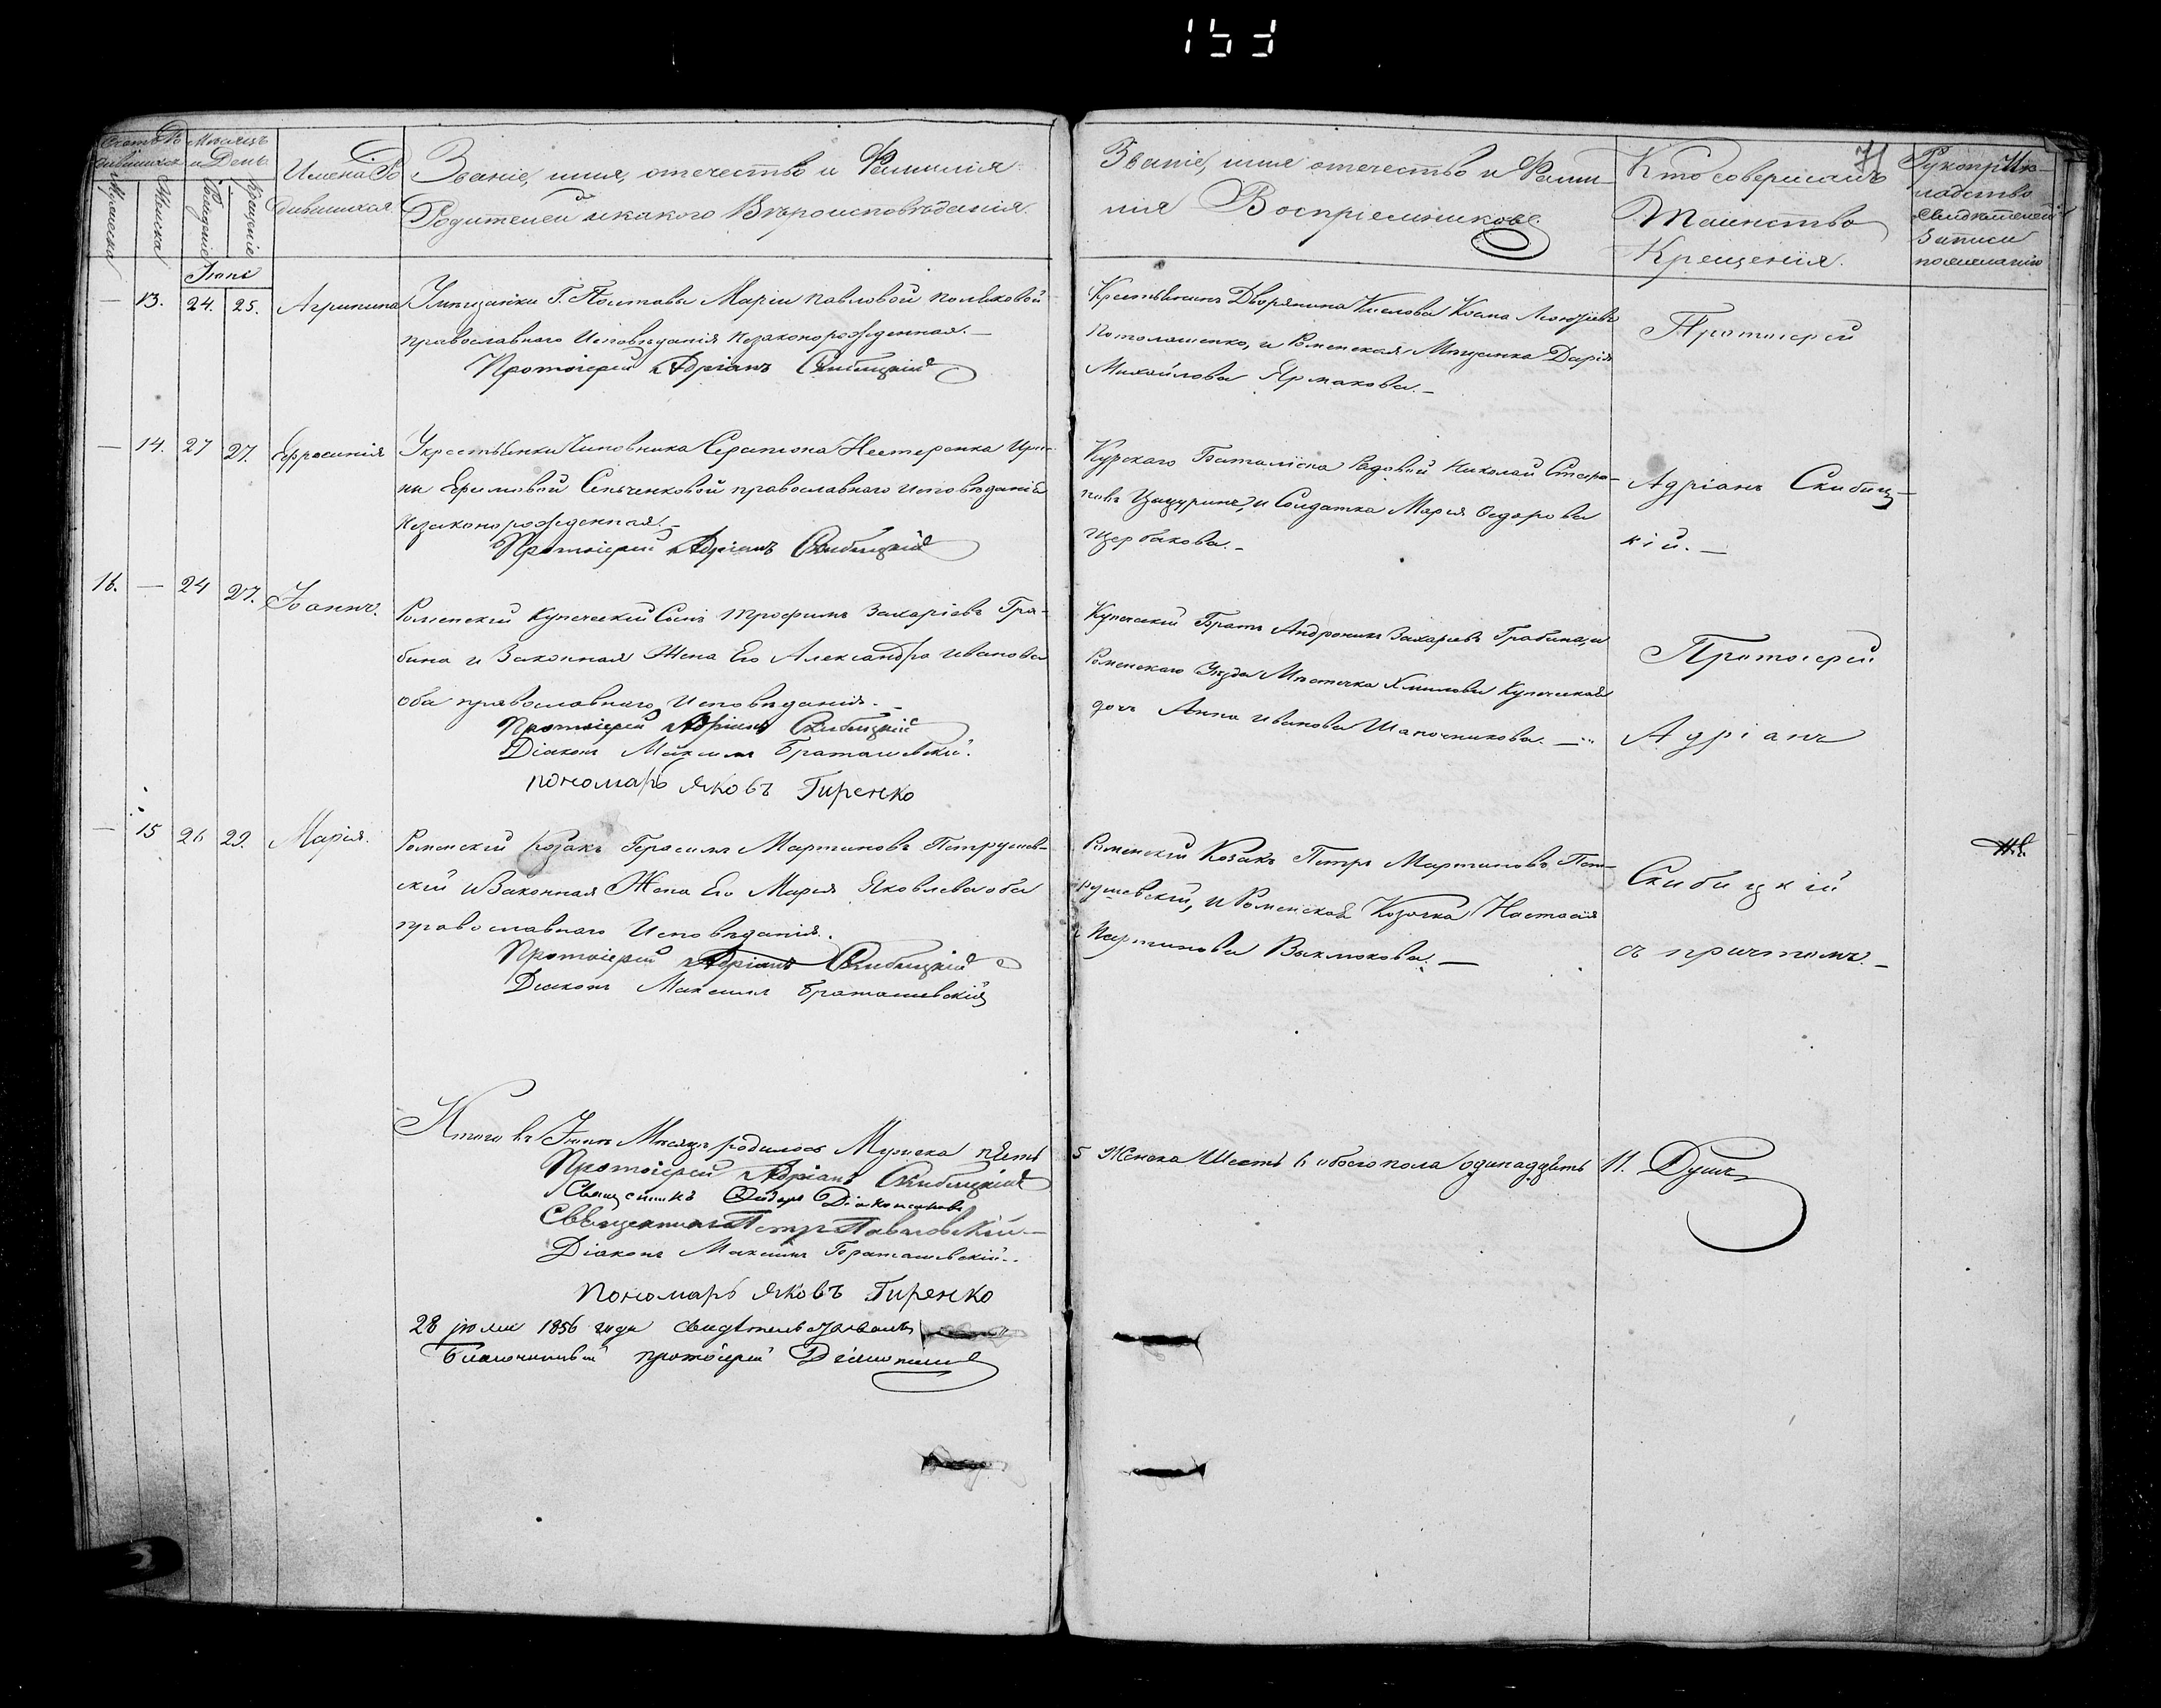 153
71
Счетъ Ро
дившихся
Мужеска
Женска
Мѣсяцъ
и День
Рожденіе
Крещеніе
Имена Ро
дившихся.
Званіе, имя, отечество и Фамилія
Родителей и какого Вѣроисповѣданія.
Званіе, имя отечество и Фами-
лія Воспріемниковъ.
Кто совершалъ
Таинство
Крещенія.
Рукоприк-
ладство
свидѣтелей
записи
по желанію
Іюнь
— 13. 24. 25. Агрипина
У мѣщанки Г. Полтавы Маріи Павловой Поляковой
православнаго Исповѣданія незаконорожденная.—
Протоіерей Адріанъ Скибицкій
Крестьянинъ Дворянина Кислова Косма Леонтіевъ
Потолошенко, и Роменская Мѣщанка Дарія
Михайлова Ярмакова.—
Протоіерей
— 14. 27 27. Ефросинія
У крестьянки Чиновника Серапіона Нестеренка Ири-
ны Ефимовой Сенченковой православнаго исповѣданія
незаконорожденная.—
Протоіерей Адріанъ Скибицкій
Курскаго Баталіона Рядовой Николай
и Солдатка Марія Федорова
Щербакова.—
Адріанъ Скибиц-
кій.—
16. — 24 27. Іоаннъ.
Роменскій Купеческій Сынъ Трофимъ Захаріевъ Гра-
бина и Законная Жена Его Александра Иванова
оба православнаго Исповѣданія.—
Протоіерей Адріанъ Скибицкій
Діаконъ Максимъ Браташевскій.
пономарь Яковъ Гиренко
Купеческій Братъ Андроникъ Захаріевъ Грабина, и
Роменскаго Уѣзда Мѣстечка Хмилова Купеческая
дочь Анна Иванова Шапочникова.—
Протоіерей
Адріанъ
— 15 26 29. Марія.
Роменскій Козакъ Герасимъ Мартиновъ Петрушев-
скій и Законная Жена Его Марія Яковлева оба
православнаго Исповѣданія.
Протоіерей Адріанъ Скибицкій
Діаконъ Максимъ Браташевскій
Роменскій Козакъ Петръ Мартиновъ Пет-
рушевскій, и Роменская Козачка Настасія
Мартинова Вакмокова.—
Скибицкій
съ причтомъ.—
Итого въ Іюнѣ Мѣсяцѣ родилось Мужеска пять
5 Женска Шесть 6 обоего пола одинадцать 11. Душъ
Протоіерей Адріанъ Скибицкій
Священникъ Діаконенковъ
Священникъ Петръ Павловскій—
Діаконъ Максимъ Браташевскій.
Пономарь Яковъ Гиренко
28 іюля 1856 года свидѣтельствовалъ
Благочинный протоіерей